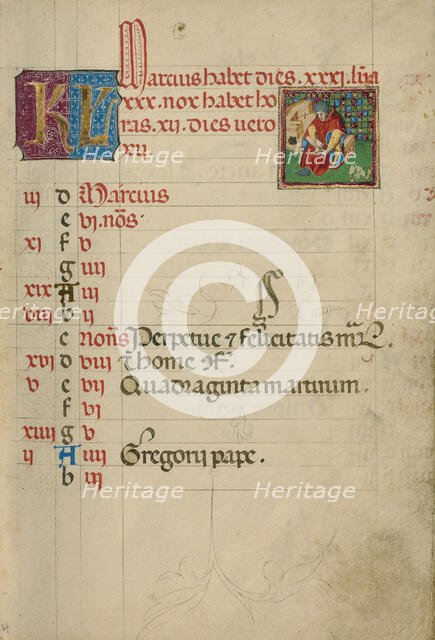 KL
Marcius habet dies. xxxi. lūa
xxx. nox habet ho
ras. xii. dies uero
xii
iii d Marcius
e vi. nōs.
xi f v
g iiii
xix A iii
viii b ii
c nonis Perpetue ⁊ felicitatis mr̄.
xvi d viii Thome
v e vii Quadraginta martirum.
f vi
xiii g v
ii A iiii Gregorii pape.
b iii
Heritage
Heritage
Heritage
Heritage
Heritage
Heritage